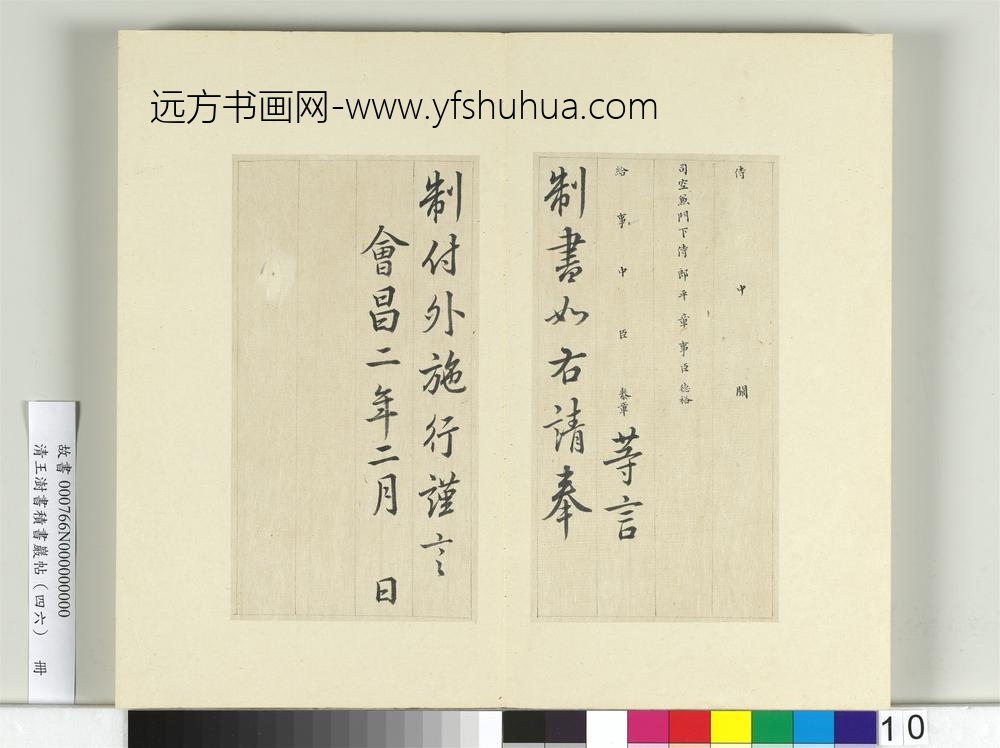 远方书画网-www.yfshuhua.com
侍中闕
司空兼門下侍郎平章事臣德裕
給事中臣泰章等言
制書如右請奉
制付外施行謹言
會昌二年二月 日
故書000766N000000000
清王澍書積書巖帖(四六) 冊
10